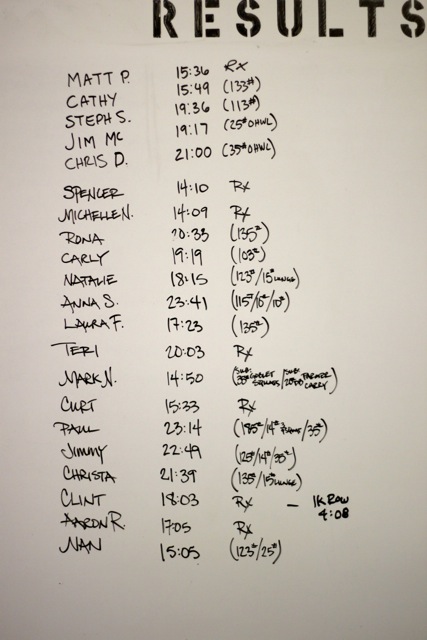 RESULTS
MATT P. 15:36 Rx
CATHY 15:49 (133#)
STEPH S. 19:36 (113#)
JIM MC 19:17 (25# OHWL)
CHRIS D. 21:00 (35# OHWL)
SPENCER 14:10 Rx
MICHELLE N. 14:09 Rx
RONA 20:33 (135#)
CARLY 19:19 (103#)
NATALIE 18:15 (123#/15# LUNGE)
ANNA S. 23:41 (115#/10#/10#)
LAURA F. 17:23 (135#)
TERI 20:03 Rx
MARK N. 14:50 (SUB: 35# GOBLET SQUATS/SUB: FARMER CARRY)
CURT 15:33 Rx
PAUL 23:14 (185#/14#/35#)
Jimmy 22:49 (125#/14#/35#)
CHRISTA 21:39 (135#/15# LUNGE)
CLINT 18:03 Rx — 1K ROW 4:08
AARON R. 17:05 Rx
NAN 15:05 (123#/25#)